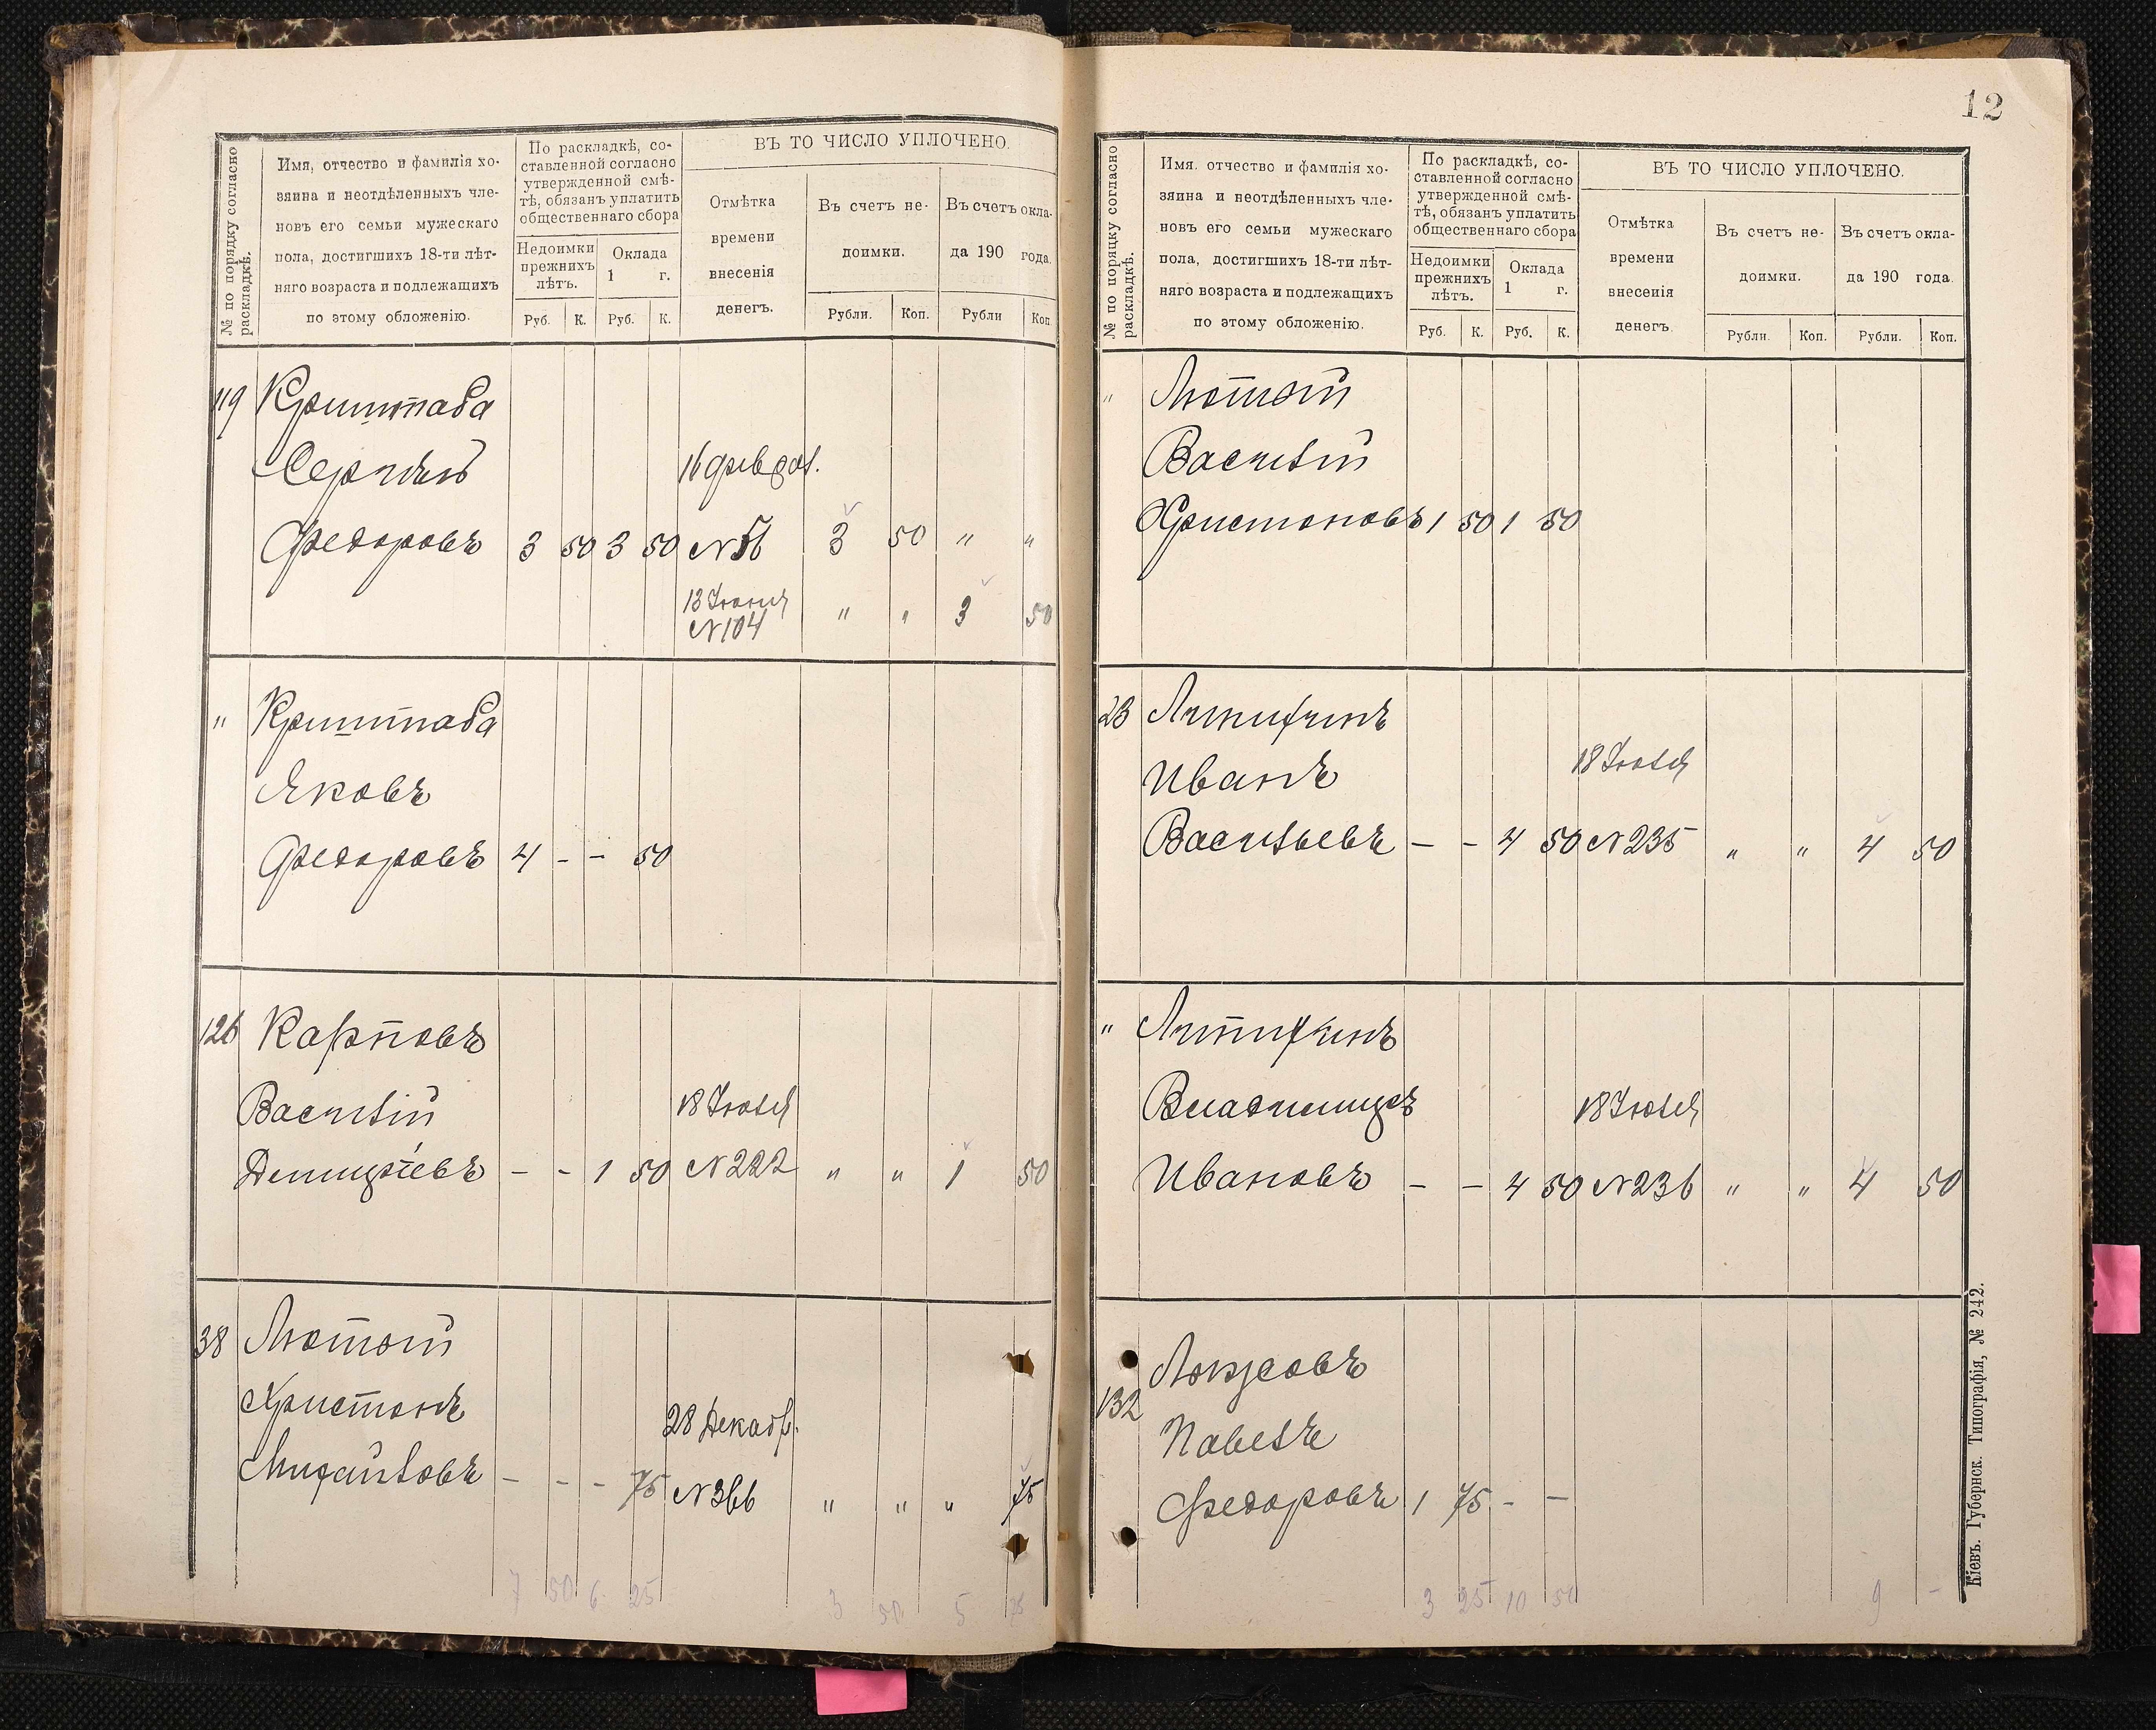 № по порядку согласно раскладкѣ.
Имя, отчество и фамилія хо-
зяина и неотдѣленныхъ чле-
новъ его семьи мужескаго
пола, достигшихъ 18-ти лѣт-
няго возраста и подлежащихъ
по этому обложенію.
По раскладкѣ, со-
ставленной согласно
утвержденной смѣ-
тѣ, обязанъ уплатить
общественнаго сбора
Недоимки
прежнихъ
лѣтъ.
Оклада
1 г.
Руб. К. Руб. К.
ВЪ ТО ЧИСЛО УПЛОЧЕНО.
Отмѣтка
времени
внесенія
денегъ.
Въ счетъ не-
доимки.
Въ счетъ окла-
да 190 года.
Рубли. Коп. Рубли Коп
119 Криштаба
Сергѣй 16 февра.
Федоровъ 3 50 3 50 N 56 3 50 " "
13 Іюня
N 104 " " 3 50
" Криштаба
Яковъ
Федоровъ 4 - - 50
126 Карповъ
Василій 18 Іюля
Дмитріевъ - - 1 50 N 222 " " 1 50
38 Лютой
Христонъ 28 Декабр.
Михайловъ - - - 75 N 366 " " " 75
7 50 6 25 3 50 5 75
12
№ по порядку согласно раскладкѣ.
Имя. отчество и фамилія хо-
зяина и неотдѣленныхъ чле-
новъ его семьи мужескаго
пола, достигшихъ 18-ти лѣт-
няго возраста и подлежащихъ
по этому обложенію.
По раскладкѣ, со-
ставленной согласно
утвержденной смѣ-
тѣ, обязанъ уплатить
общественнаго сбора
Недоимки
прежнихъ
лѣтъ.
Оклада
1 г.
Руб. К. Руб. К.
ВЪ ТО ЧИСЛО УПЛОЧЕНО.
Отмѣтка
времени
внесенія
денегъ.
Въ счетъ не-
доимки.
Въ счетъ окла-
да 190 года.
Рубли. Коп. Рубли. Коп.
" Лютой
Василій
Христоновъ 1 50 1 50
23
Иванъ 18 Іюля
Васильевъ - - 4 50 N 235 " " 4 50
"
Владимиръ 18 Іюля
Ивановъ - - 4 50 N 236 " " 4 50
132
Павелъ
Федоровъ 1 75 - -
3 25 10 50 9 -
Кіевъ. Губернск. Типографія, № 242.